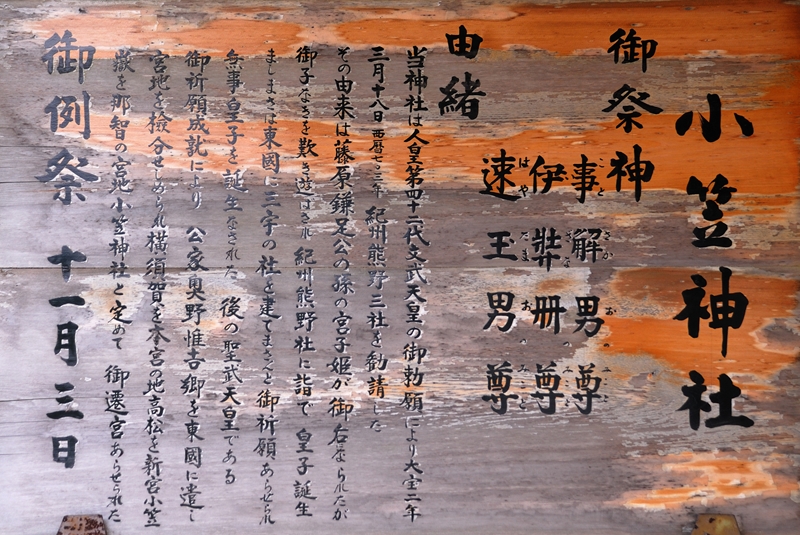 小笠神社
御祭神
事解男尊
ことさかおのみこと
伊弉册尊
いざなみのみこと
速玉男尊
はやたまおのみこと
由緒
当神社は人皇第四十二代文武天皇の御勅願により大宝二年
三月十八日西暦七〇二年 紀州熊野三社を勧請した
その由来は藤原鎌足公の孫の宮子姫が御后なられたが
御子なきを歎き遊ばされ 紀州熊野社に詣で 皇子誕生
ましまさば東國に三宇の社を建てまさんと御祈願あらせられ
無事皇子を誕生なされた 後の聖武天皇である
御祈願成就により 公家奥野惟吉郷を東國に遣し
宮地を撿分せしめられ横須賀を本宮の地高松を新宮小笠
嶽を那智の宮地小笠神社と定めて 御遷宮あらせられた
御例祭 十一月三日